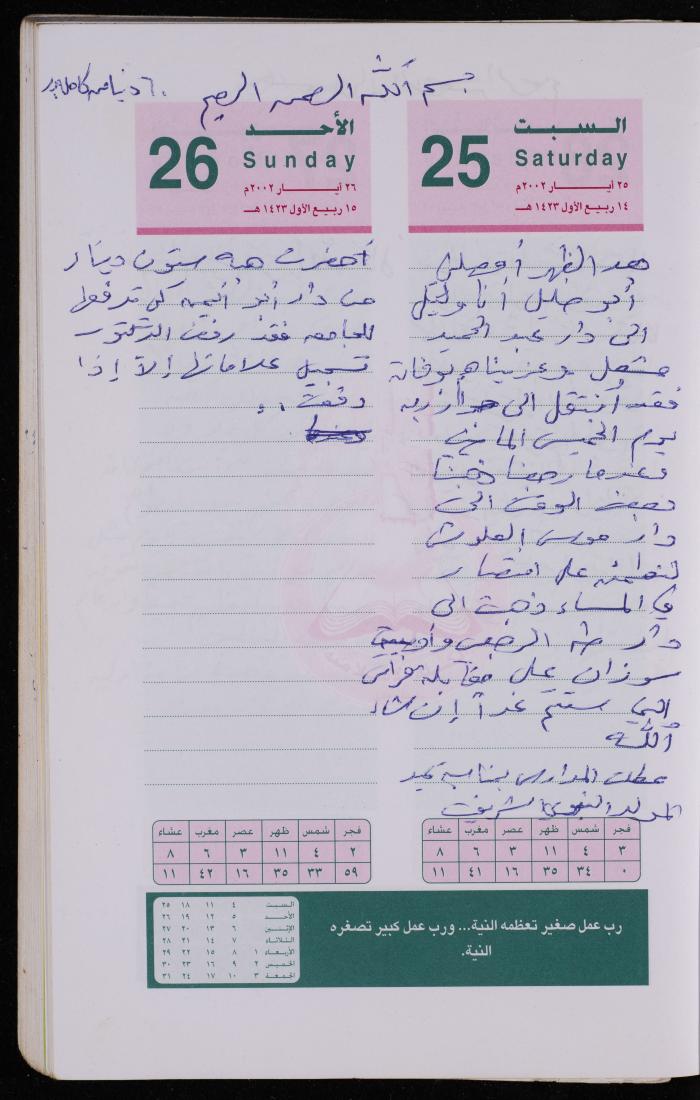 بسم الله الرحمن الرحيم
السبت
25
Saturday
٢٥ أيار ٢٠٠٢م
١٤ ربيع الأول ١٤٢٣ هـ
بعد الظهر
أبو خليل أنا وليلى
الى دار عبد الحميد
مشعل وعزيناهم بوفاة
فقد أنتقل الى جوار ربه
يوم الخميس الماضي
وعندما رجعنا ذهبنا
الوقت الى
دار موسى
لنطمئن على انتصار
في المساء ذهبت الى
دار طه
سوزان على مقابلة
التي ستتم غداً إن شاء
الله
عطلت المدارس بمناسبة عيد
المولد النبوي الشريف
فجر شمس ظهر عصر مغرب عشاء
٣ ٤ ١١ ٣ ٦ ٨
٠ ٣٤ ٣٥ ١٦ ٤١ ١١
الأحد
26
Sunday
٢٦ أيار ٢٠٠٢م
١٥ ربيع الأول ١٤٢٣ هـ
أحضرت هبه ستون دينار
من دار أبو كي تدفعها
للجامعه فقد رفض الدكتور
تسجيل علاماتها إلا إذا
دفعت
فجر شمس ظهر عصر مغرب عشاء
٢ ٤ ١١ ٣ ٦ ٨
٥٩ ٣٣ ٣٥ ١٦ ٤٢ ١١
رب عمل صغير تعظمه النية... ورب عمل كبير تصغره
النية.
السبت ٤ ١١ ١٨ ٢٥
الأحد ٥ ١٢ ١٩ ٢٦
الإثنين ٦ ١٣ ٢٠ ٢٧
الثلاثاء ٧ ١٤ ٢١ ٢٨
الأربعاء ١ ٨ ١٥ ٢٢ ٢٩
الخميس ٢ ٩ ١٦ ٢٣ ٣٠
الجمعة ٣ ١٠ ١٧ ٢٤ ٣١